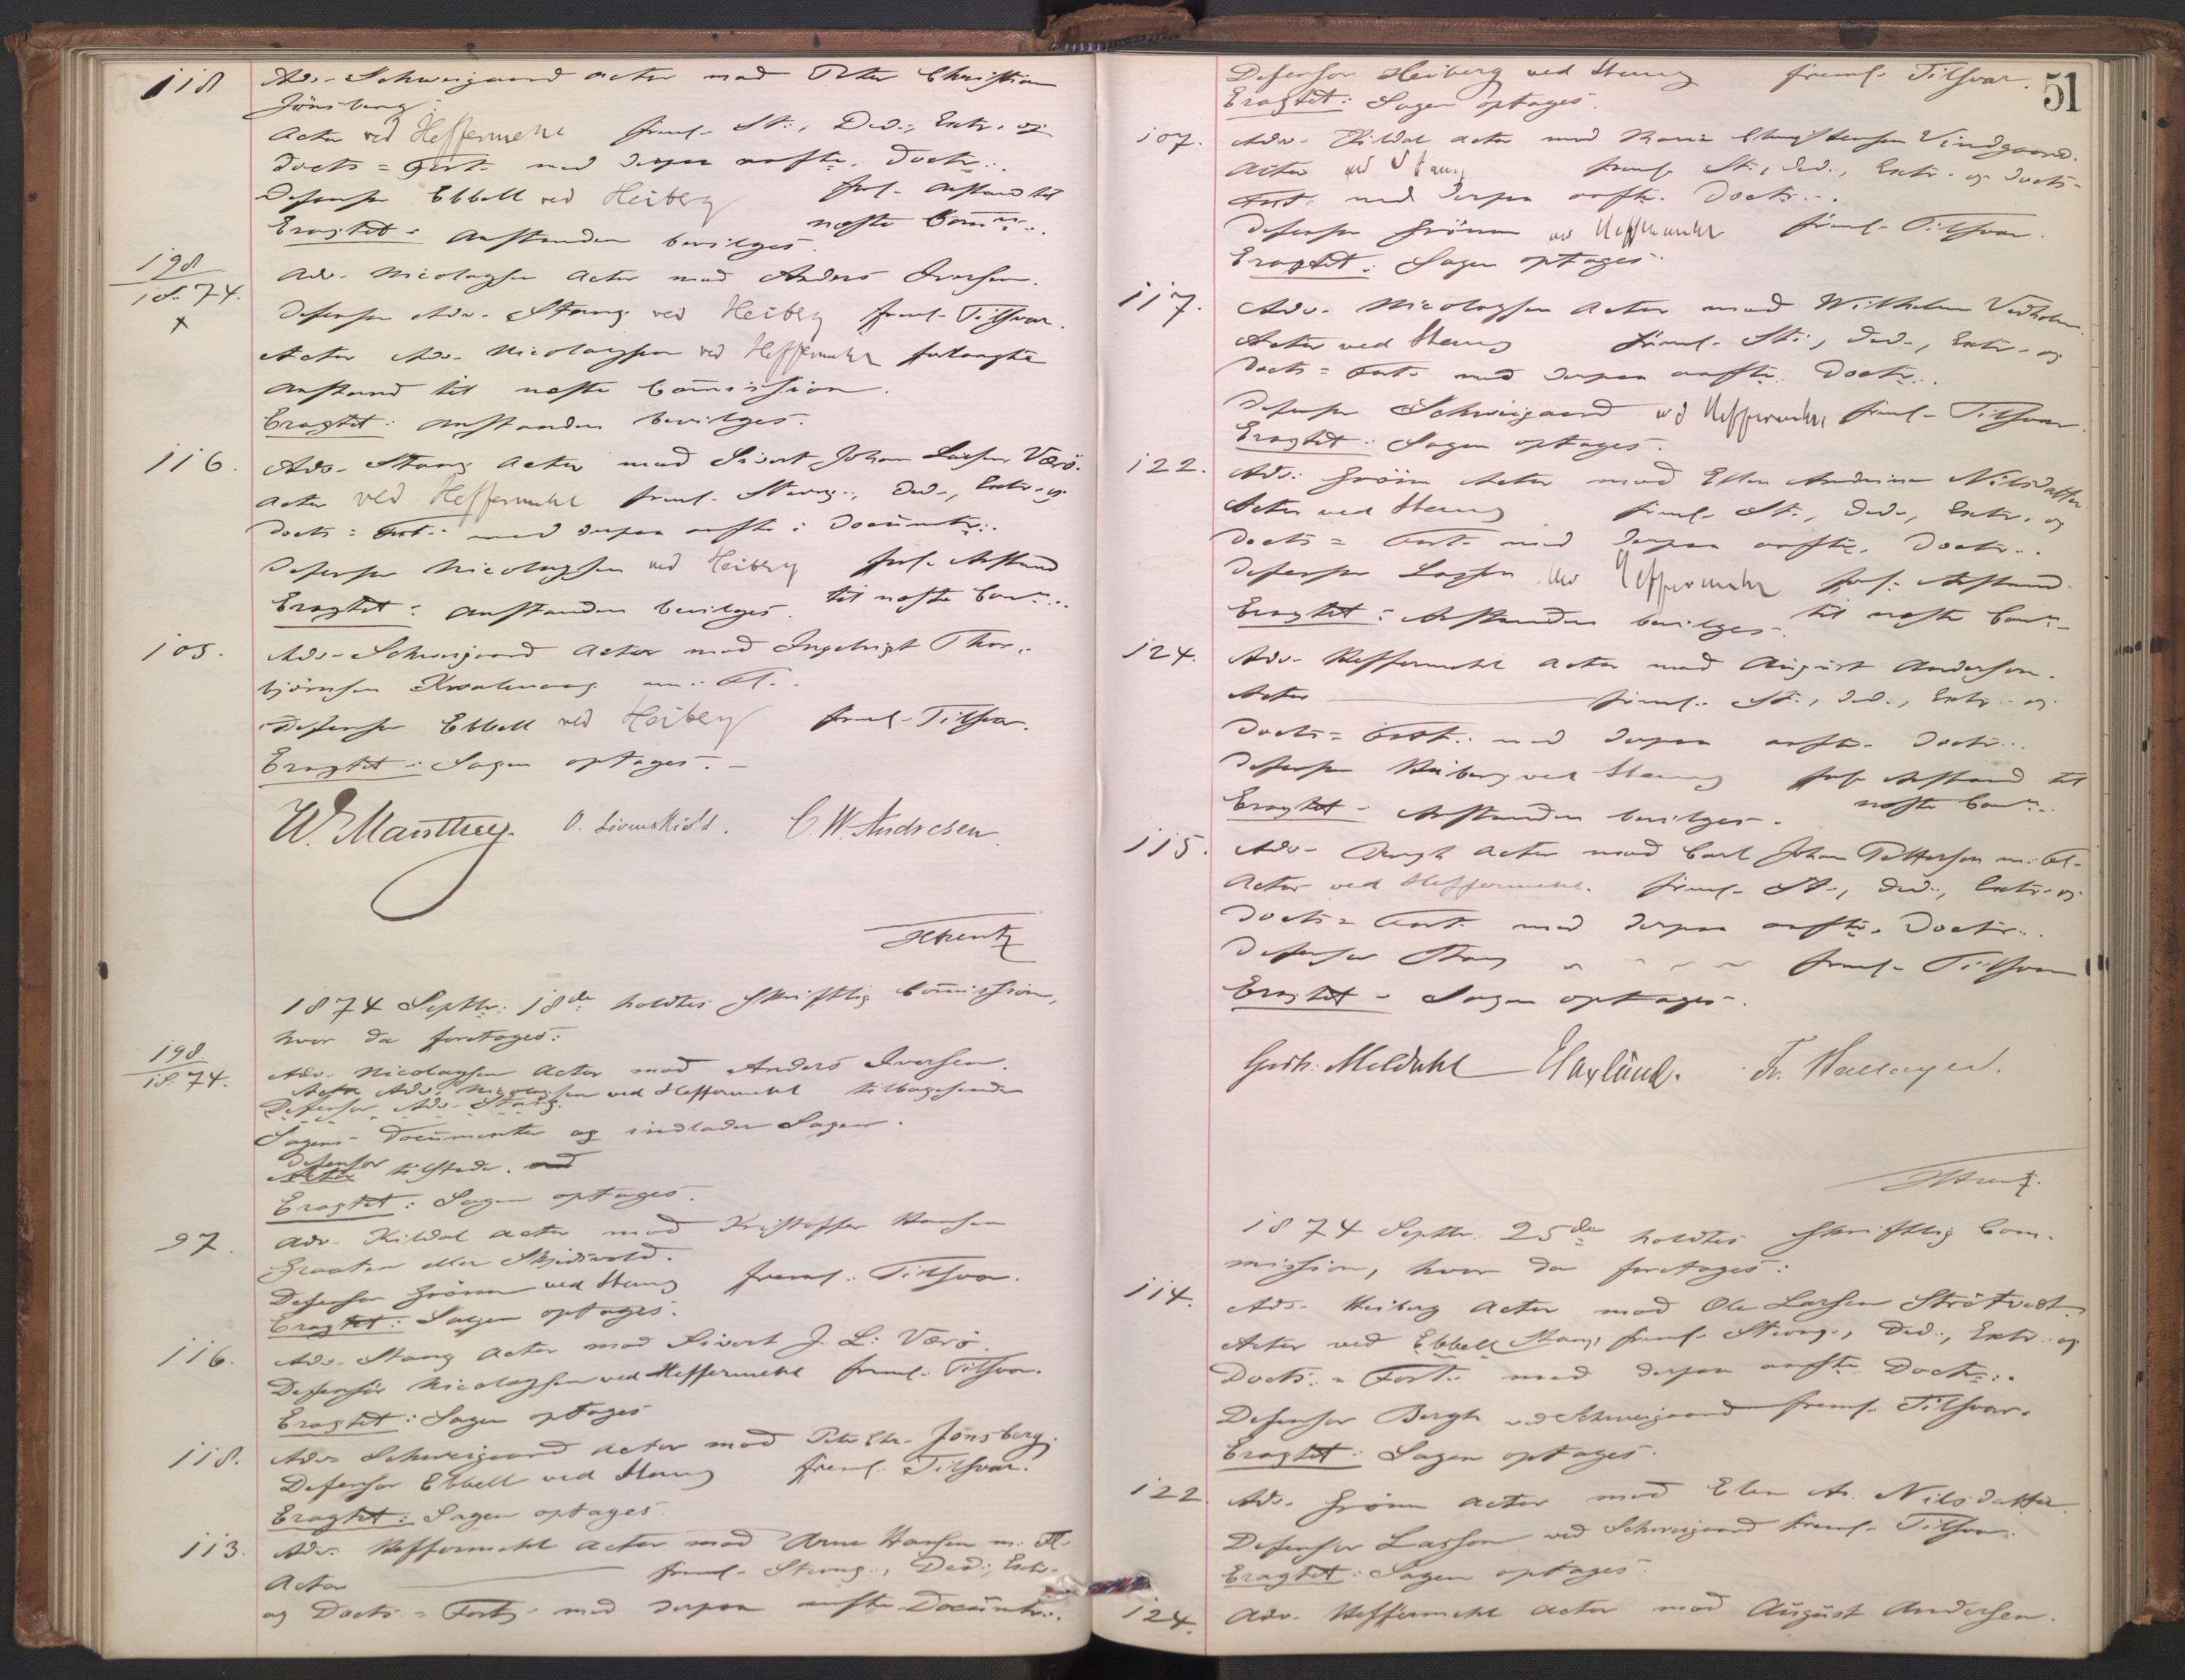 118 Adv. Schweigaard Actor mod Peter Christian
Jönsberg.
Actor ved Heffermehl freml. St., Ded., Extr. og
Docts = Fort. med derpaa anfte. Doctr..
Defensor Ebbell ved Heiberg forl. Anstand til
næste Comm..
Eragtet: Anstanden bevilges.
198/18 74. Adv. Nicolaysen Actor mod Anders Iversen.
x
Defensor Adv. Stang ved Heiberg freml. Tilsvar.
Actor Adv. Nicolaysen ved Heffermehl forlangte
Anstand til næste Commission.
Eragtet: Anstanden bevilges.
116. Adv. Stang Actor mod Sivert Johan Larsen Værö.
Actor ved Heffermehl freml. Stevng., Ded., Extr. og
Docts = Fort. med derpaa anfte: Documtr..
Defensor Nicolaysen ved Heiberg forl. Anstand
til næste Com..
Eragtet: Anstanden bevilges.
105. Adv. Schweigaard Actor mod Ingebrigt Thor-
björnsen m: Fl..
Defensor Ebbell ved Heiberg freml. Tilsvar.
Eragtet: Sagen optages. -
W. Manthey. O. Lövenskiold. C. W. Andresen.
1874 Septbr. 18de holdtes skriftlig Commission,
hvor da foretoges:
198/18 74. Adv. Nicolaysen Actor mod Anders Iversen.
Actor Adv. Nicolaysen ved Heffermehl tilbagesender
Defensor Adv. Stang
Sagens Documenter og indlader Sagen.
Defensor
Actor tilstede. ved
Eragtet: Sagen optages.
97. Adv. Kildal Actor mod Kristoffer Hansen
Braaten eller Skjidsvold.
Defensor Grönn ved Stang freml. Tilsvar.
Eragtet: Sagen optages.
116. Adv. Stang Actor mod Sivert J. L. Værö.
Defensor Nicolaysen ved Heffermehl freml. Tilsvar.
Eragtet: Sagen optages
118. Adv. Schweigaard Actor mod Peter Chr. Jönsberg.
Defensor Ebbell ved Stang freml. Tilsvar.
Eragtet: Sagen optages.
113. Adv. Heffermehl Actor mod Arne Hansen m. Fl.
Actor freml. Stevng., Ded., Extr.
og Docts = Fort. med derpaa anfte Documtr..
51
Defensor Heiberg ved Stang freml. Tilsvar.
Eragtet: Sagen optages.
107. Adv. Kildal Actor mod Maria Christensen Vindgaard.
Actor ved Stang freml. St., Ded., Extr. og Docts =
Fort. med derpaa anfte. Doctr..
Defensor Grönn ved Heffermehl freml. Tilsvar.
Eragtet: Sagen optages.
117. Adv. Nicolaysen Actor mod Wilhelm Vedholm.
Actor ved Stang freml. St., Ded., Extr. og
Docts = Fort. med derpaa anfte. Doctr..
Defensor Schweigaard ved Heffermehl freml. Tilsvar.
Eragtet: Sagen optages.
122. Adv. Grönn Actor mod Ellen Andrine Nilsdatter.
Actor ved Stang freml. St., Ded., Extr. og
Docts = Fort. med derpaa anfte. Doctr..
Defensor Lasson ved Heffermehl forl. Anstand
til næste Com..
Eragtet: Anstanden bevilges.
124. Adv. Heffermehl Actor mod August Andersen.
Actor freml. St., Ded., Extr. og
Docts = Fort. med derpaa anfte. Doctr..
Defensor Heiberg ved Stang forl. Anstand til
næste Com..
Eragtet: Anstanden bevilges.
115. Adv. Bergh Actor mod Carl Johan Pettersen m. Fl.
Actor ved Heffermehl. freml. St., Ded., Extr. og
Docts = Fort. med derpaa anfte. Doctr..
Defensor Stang freml. Tilsvar
Eragtet: Sagen optages.
Gusth. Meldahl Haxlund. Fr. Hallager.
1874 Septbr. 25de holdtes skriftlig Com-
mission, hvor da foretoges:
114. Adv. Heiberg Actor mod Ole Larsen Strötvedt
Actor ved Ebbell Stang freml. Stevng., Ded., Extr. og
Docts. = Fort. med derpaa anfte Doctr..
Defensor Bergh ved Schweigaard freml. Tilsvar.
Eragtet: Sagen optages.
122 Adv. Grönn Actor mod Elen A. Nilsdatter.
Defensor Lasson ved Schweigaard freml. Tilsvar.
Eragtet: Sagen optages.
124. Adv. Heffermehl Actor mod August Andersen.